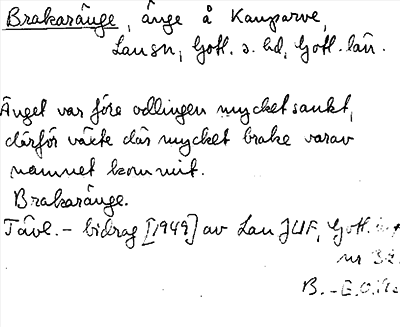 Brakaränge, änge å Kauparve,
Lau sn, Gotl. s. hd, Gotl. län.
Änget var före odlingen mycket sankt,
därför växte där mycket brake varav
namnet kommit.
Brakaränge.
Tävl.- bidrag [1949] av Lau JUF, Gotl.
nr
B. - E.O.